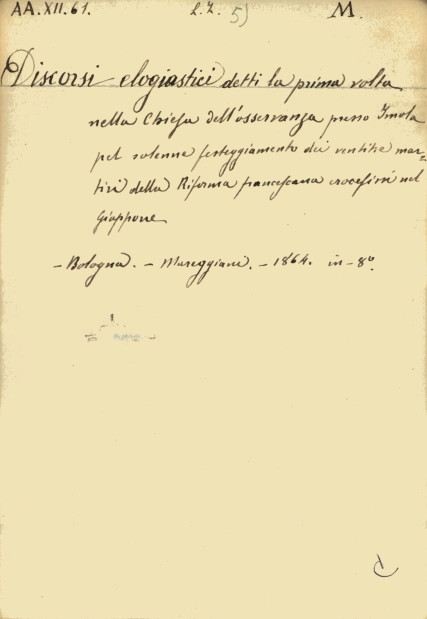 AA.XII.61. L.Z. 5) M.
Discorsi elogiastici detti la prima volta
nella Chiesa dell'osservanza presso Imola
pel solenne festeggiamento dei ventitre mar=
tiri della Riforma francescana crocefissi nel
Giappone
- Bologna. - Mareggiani. - 1864. in - 8º.